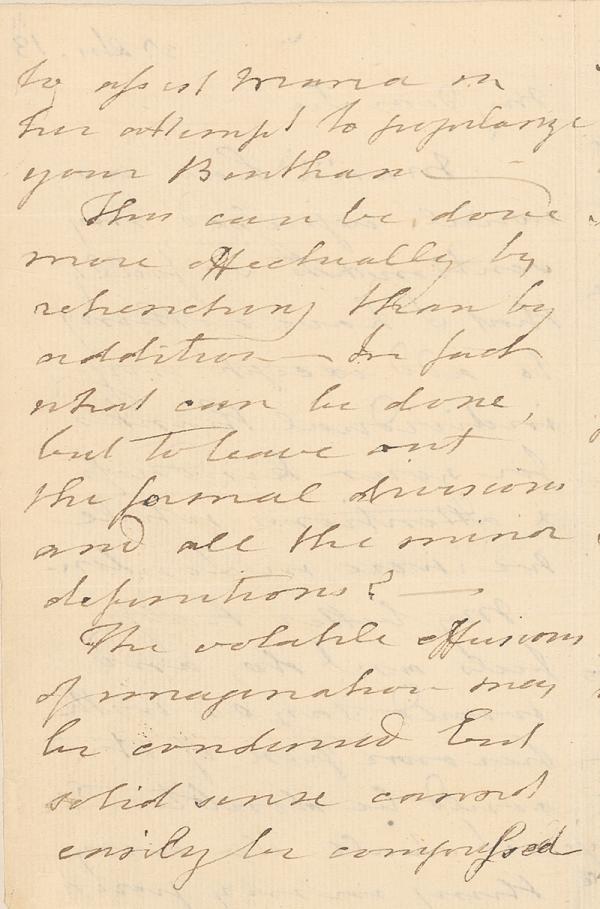 to assist Maria in
her attempt to popularize
your Benthan
This can be done
more effectually by
retrenching than by
addition — In fact
what can be done,
but to leave out
the formal divisions
and all the minor
definitions? —
The volatile effusions
of imagination may
be condensed but
solid sense cannot
easily be compressed